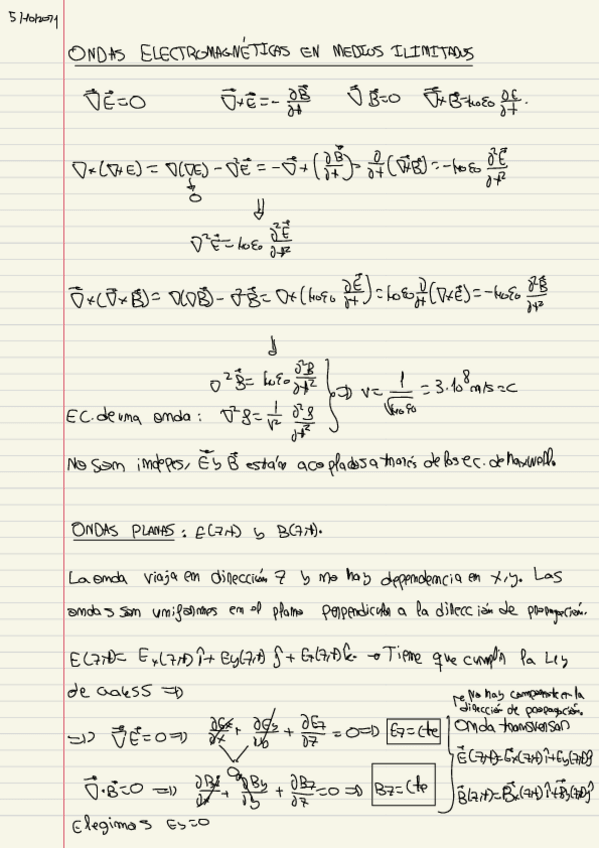 5/10/2021
ONDAS ELECTROMAGNÉTICAS EN MEDIOS ILIMITADOS
∇⃗E⃗=0 ∇⃗×E⃗=-∂B⃗/∂t ∇⃗B⃗=0 ∇⃗×B⃗=μ₀ε₀ ∂E/∂t.
∇×(∇×E)=∇(∇E)-∇²E⃗=-∇⃗×(∂B⃗/∂t)=-∂/∂t(∇×B⃗)=-μ₀ε₀ ∂²E⃗/∂t²
↓ 0 ⇓
∇²E⃗=μ₀ε₀ ∂²E⃗/∂t²
∇⃗×(∇⃗×B⃗)=∇(∇B⃗)-∇²B⃗=∇×(μ₀ε₀ ∂E⃗/∂t)=μ₀ε₀ ∂/∂t(∇×E⃗)=-μ₀ε₀ ∂²B⃗/∂t²
⇓
∇²B⃗=μ₀ε₀ ∂²B/∂t² ⇒ v=1/√μ₀ε₀=3·10⁸m/s=c
EC. de una onda: ∇²f=1/v² ∂²f/∂t²
No son indepes, E⃗ y B⃗ están acoplados a través de las ec. de Maxwell.
ONDAS PLANAS: E(z,t) y B(z,t).
La onda viaja en dirección z y no hay dependencia en x,y. Las
ondas son uniformes en el plano perpendicular a la dirección de propagación.
E(z,t)=Ex(z,t)î+Ey(z,t)ĵ+Ez(z,t)k → Tiene que cumplir la Ley
de Gauss ⇒
No hay componente en la
dirección de propagación.
⇒ ∇⃗E⃗=0 ⇒ ∂Ex/∂x+∂Ey/∂y+∂Ez/∂z=0 ⇒ Ez=cte
Onda transversal
E⃗(z,t)=Ex(z,t)î+Ey(z,t)ĵ
0
∇⃗·B⃗=0 ⇒ ∂Bx/∂x+∂By/∂y+∂Bz/∂z=0 ⇒ Bz=cte
B⃗(z,t)=Bx(z,t)î+By(z,t)ĵ
Elegimos Ey=0